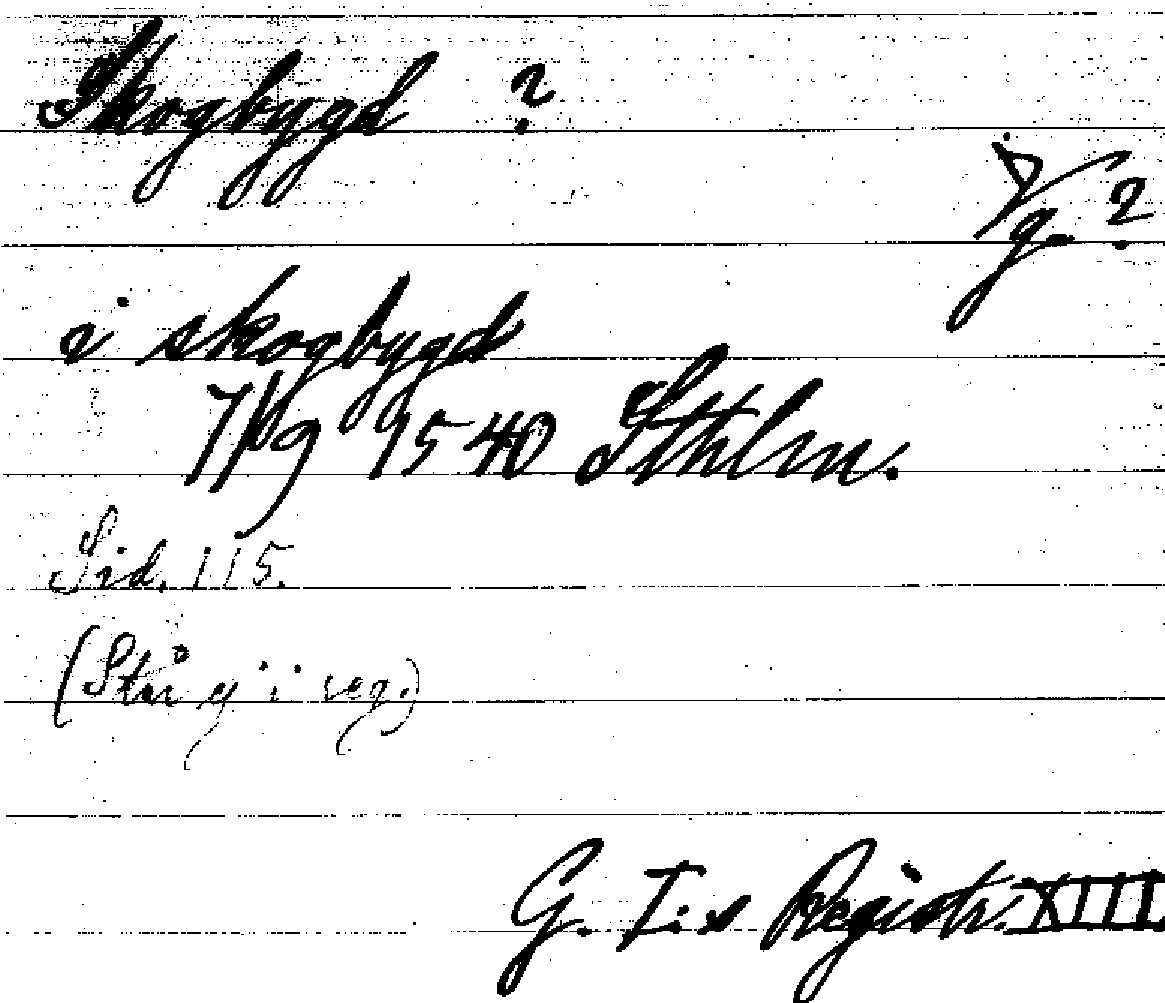 Skogbygd ?
Vg. ?
i skogbygd
7/69 1540 Sthlm.
Sid. 115.
(Står ej i reg.)
G. I:s Registr. XIII.